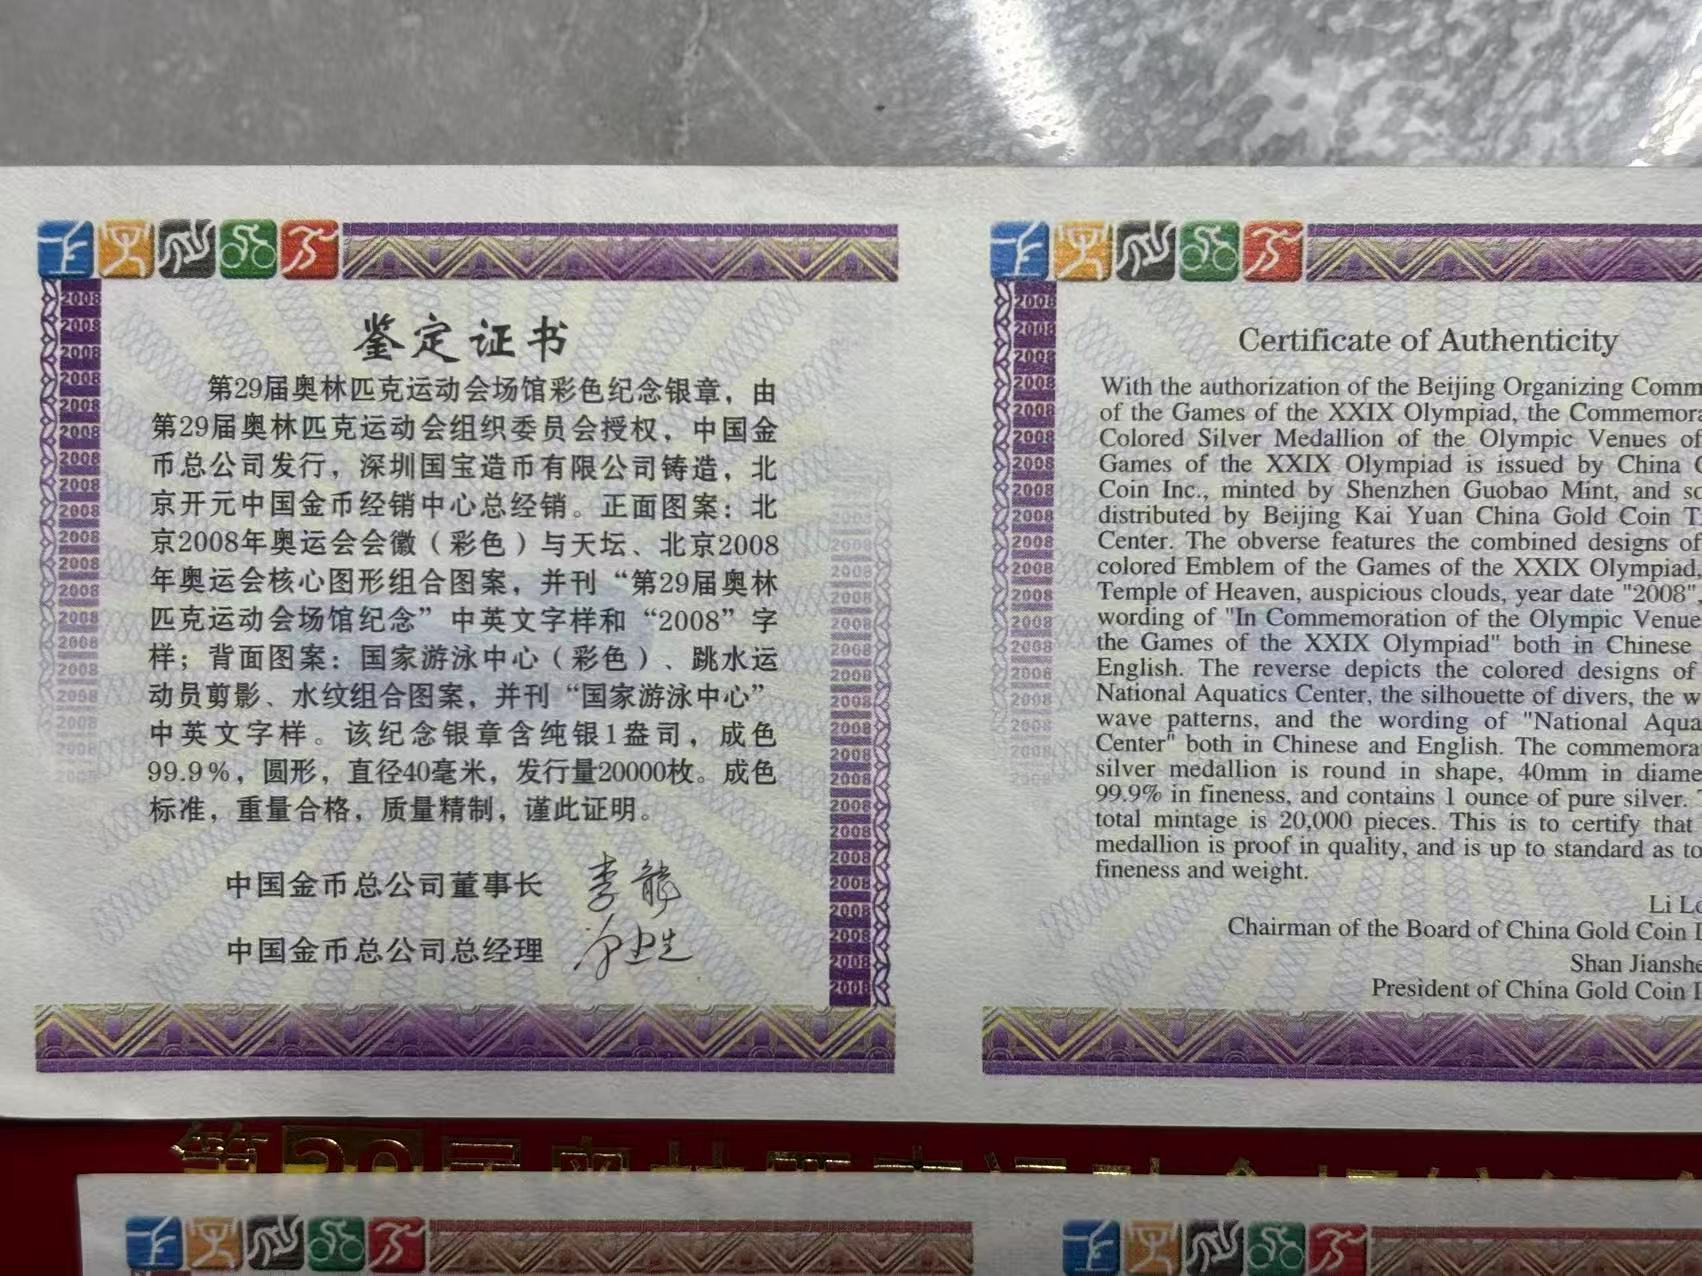 鉴定证书
第29届奥林匹克运动会场馆彩色纪念银章，由
第29届奥林匹克运动会组织委员会授权，中国金
币总公司发行，深圳国宝造币有限公司铸造，北
京开元中国金币经销中心总经销。正面图案：北
京2008年奥运会会徽（彩色）与天坛、北京2008
年奥运会核心图形组合图案，并刊“第29届奥林
匹克运动会场馆纪念”中英文字样和“2008”字
样；背面图案：国家游泳中心（彩色）、跳水运
动员剪影、水纹组合图案，并刊“国家游泳中心”
中英文字样。该纪念银章含纯银1盎司，成色
99.9%，圆形，直径40毫米，发行量20000枚。成色
标准，重量合格，质量精制，谨此证明。
中国金币总公司董事长
中国金币总公司总经理
Certificate of Authenticity
With the authorization of the Beijing Organizing Comm
of the Games of the XXIX Olympiad, the Commemora
Colored Silver Medallion of the Olympic Venues of
Games of the XXIX Olympiad is issued by China
Coin Inc., minted by Shenzhen Guobao Mint, and so
distributed by Beijing Kai Yuan China Gold Coin T
Center. The obverse features the combined designs of
colored Emblem of the Games of the XXIX Olympiad,
Temple of Heaven, auspicious clouds, year date "2008",
wording of "In Commemoration of the Olympic Venue
the Games of the XXIX Olympiad" both in Chinese
English. The reverse depicts the colored designs of
National Aquatics Center, the silhouette of divers, the w
wave patterns, and the wording of "National Aqua
Center" both in Chinese and English. The commemora
silver medallion is round in shape, 40mm in diame
99.9% in fineness, and contains 1 ounce of pure silver.
total mintage is 20,000 pieces. This is to certify that
medallion is proof in quality, and is up to standard as to
fineness and weight.
Li Lo
Chairman of the Board of China Gold Coin I
Shan Jianshe
President of China Gold Coin I